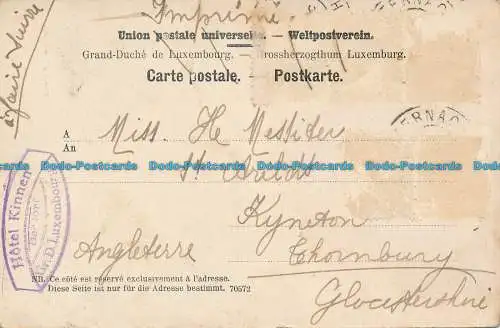 Imprimé
à faire suivre
Union postale universelle. — Weltpostverein.
Grand-Duché de Luxembourg. — Grossherzogthum Luxemburg.
Carte postale. — Postkarte.
A
An
Miss. He
Kyneton
Thornbury
Gloucestershire
Angleterre
Hôtel Kinnen
Gr. D. Luxembourg
NB. Ce côté est réservé exclusivement à l'adresse.
Diese Seite ist nur für die Adresse bestimmt. 70572
Dodo-Postcards Dodo-Postcards Dodo-Postcards Dodo-Postcards Dodo-Postcards